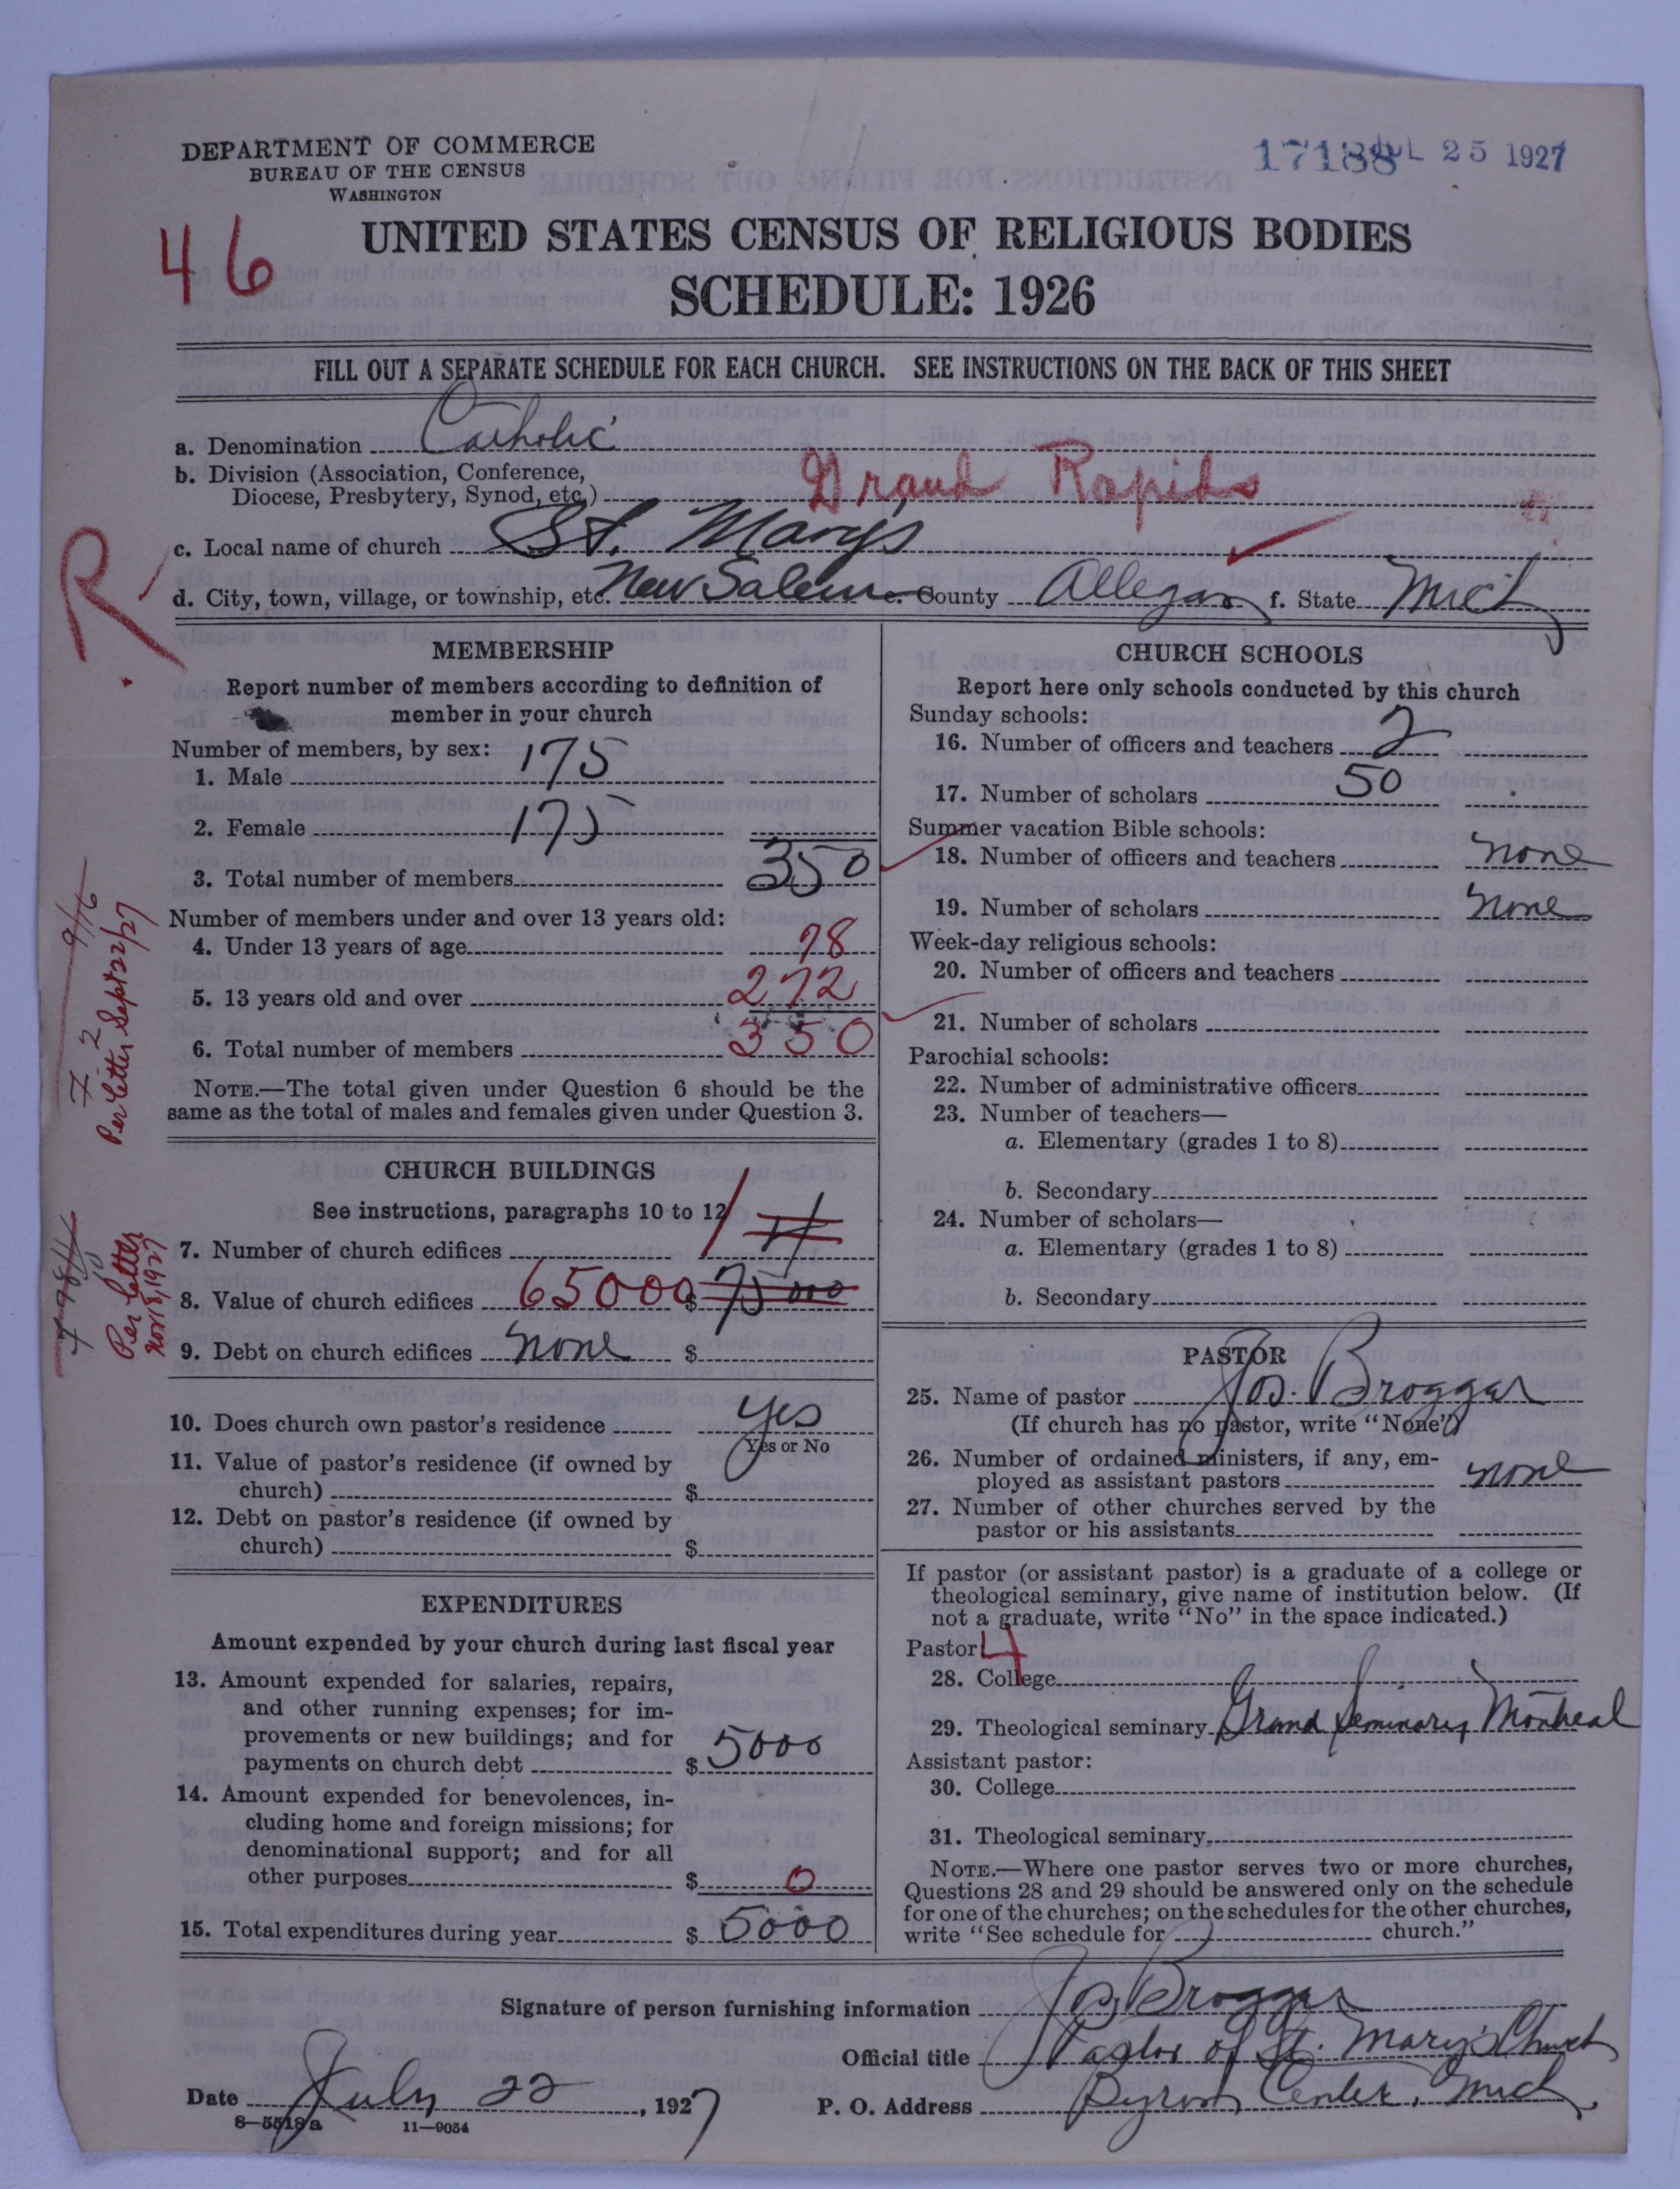 DEPARTMENT OF COMMERCE
BUREAU OF THE CENSUS
WASHINGTON
17188 JUL 25 1927
46
UNITED STATES CENSUS OF RELIGIOUS BODIES
SCHEDULE: 1926
FILL OUT A SEPARATE SCHEDULE FOR EACH CHURCH. SEE INSTRUCTIONS ON THE BACK OF THIS SHEET
a. Denomination Catholic
b. Division (Association, Conference,
Diocese, Presbytery, Synod, etc.) Grand Rapids
c. Local name of church St. Marys
d. City, town, village, or township, etc. New Salem e. County Allegan f. State Mich
R
MEMBERSHIP
Report number of members according to definition of
member in your church
Number of members, by sex:
1. Male 175
2. Female 175
3. Total number of members 350
Number of members under and over 13 years old:
4. Under 13 years of age 78
5. 13 years old and over 272
6. Total number of members 350
NOTE.—The total given under Question 6 should be the
same as the total of males and females given under Question 3.
Per letter Sept 22/27
CHURCH BUILDINGS
See instructions, paragraphs 10 to 12
7. Number of church edifices 1
8. Value of church edifices 65000 $ 75000
9. Debt on church edifices none $
Per letter
Nov 8, 1927
10. Does church own pastor's residence yes
Yes or No
11. Value of pastor's residence (if owned by
church) $
12. Debt on pastor's residence (if owned by
church) $
EXPENDITURES
Amount expended by your church during last fiscal year
13. Amount expended for salaries, repairs,
and other running expenses; for im-
provements or new buildings; and for
payments on church debt $ 5000
14. Amount expended for benevolences, in-
cluding home and foreign missions; for
denominational support; and for all
other purposes $ 0
15. Total expenditures during year $ 5000
CHURCH SCHOOLS
Report here only schools conducted by this church
Sunday schools:
16. Number of officers and teachers 2
17. Number of scholars 50
Summer vacation Bible schools:
18. Number of officers and teachers none
19. Number of scholars none
Week-day religious schools:
20. Number of officers and teachers
21. Number of scholars
Parochial schools:
22. Number of administrative officers
23. Number of teachers—
a. Elementary (grades 1 to 8)
b. Secondary
24. Number of scholars—
a. Elementary (grades 1 to 8)
b. Secondary
PASTOR
25. Name of pastor Jos. Broggar
(If church has no pastor, write "None")
26. Number of ordained ministers, if any, em-
ployed as assistant pastors none
27. Number of other churches served by the
pastor or his assistants
If pastor (or assistant pastor) is a graduate of a college or
theological seminary, give name of institution below. (If
not a graduate, write "No" in the space indicated.)
Pastor: 4
28. College
29. Theological seminary Grand Seminary Montreal
Assistant pastor:
30. College
31. Theological seminary
NOTE.—Where one pastor serves two or more churches,
Questions 28 and 29 should be answered only on the schedule
for one of the churches; on the schedules for the other churches,
write "See schedule for church."
Signature of person furnishing information Jos. Broggar
Official title Pastor of St. Mary's Church
Date July 22, 1927 P. O. Address Byron Center, Mich
8—5518a 11—9054